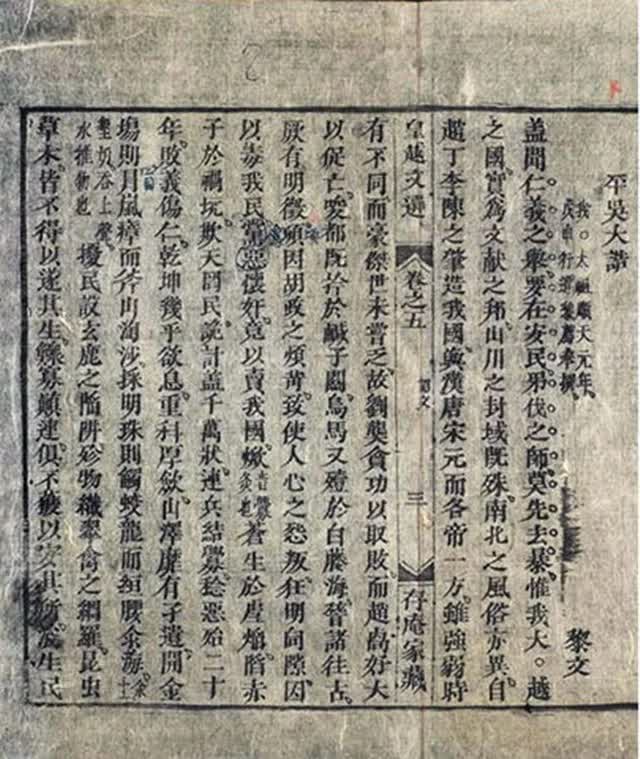 平吳大誥
我。太祖順天元年。
黎文
蓋聞仁義之舉要在安民弔伐之師莫先去暴惟我大。越
之國實爲文献之邦山川之封域既殊南北之風俗亦異自
趙丁李陳之肇造我國與漢唐宋元而各帝一方雖強弱時
皇越文選 卷之五 誥文 三 存庵家藏
有不同而豪傑世未嘗乏故劉龑貪功以取敗而趙卨好大
以促亡唆都既拾於鹹子關烏馬又殪於白藤海稽諸往古
厥有明徵頃因胡政之煩苛致使人心之怨叛狂明伺隙因
以毒我民黨惡懷奸竟以賣我國焮蒼生於虐焰陷赤
子於禍坑欺天罔民詭計盖千萬狀連兵結釁稔惡殆二十
年敗義傷仁乾坤幾乎欲息重科厚歛山澤靡有孑遺開金
塲則冒嵐瘴而斧山淘沙採明珠則觸蛟龍而絙腰汆海
擾民設玄鹿之陷阱殄物織翠禽之網羅昆虫
草木皆不得以遂其生鰥寡顛連俱不獲以安其所浚生民